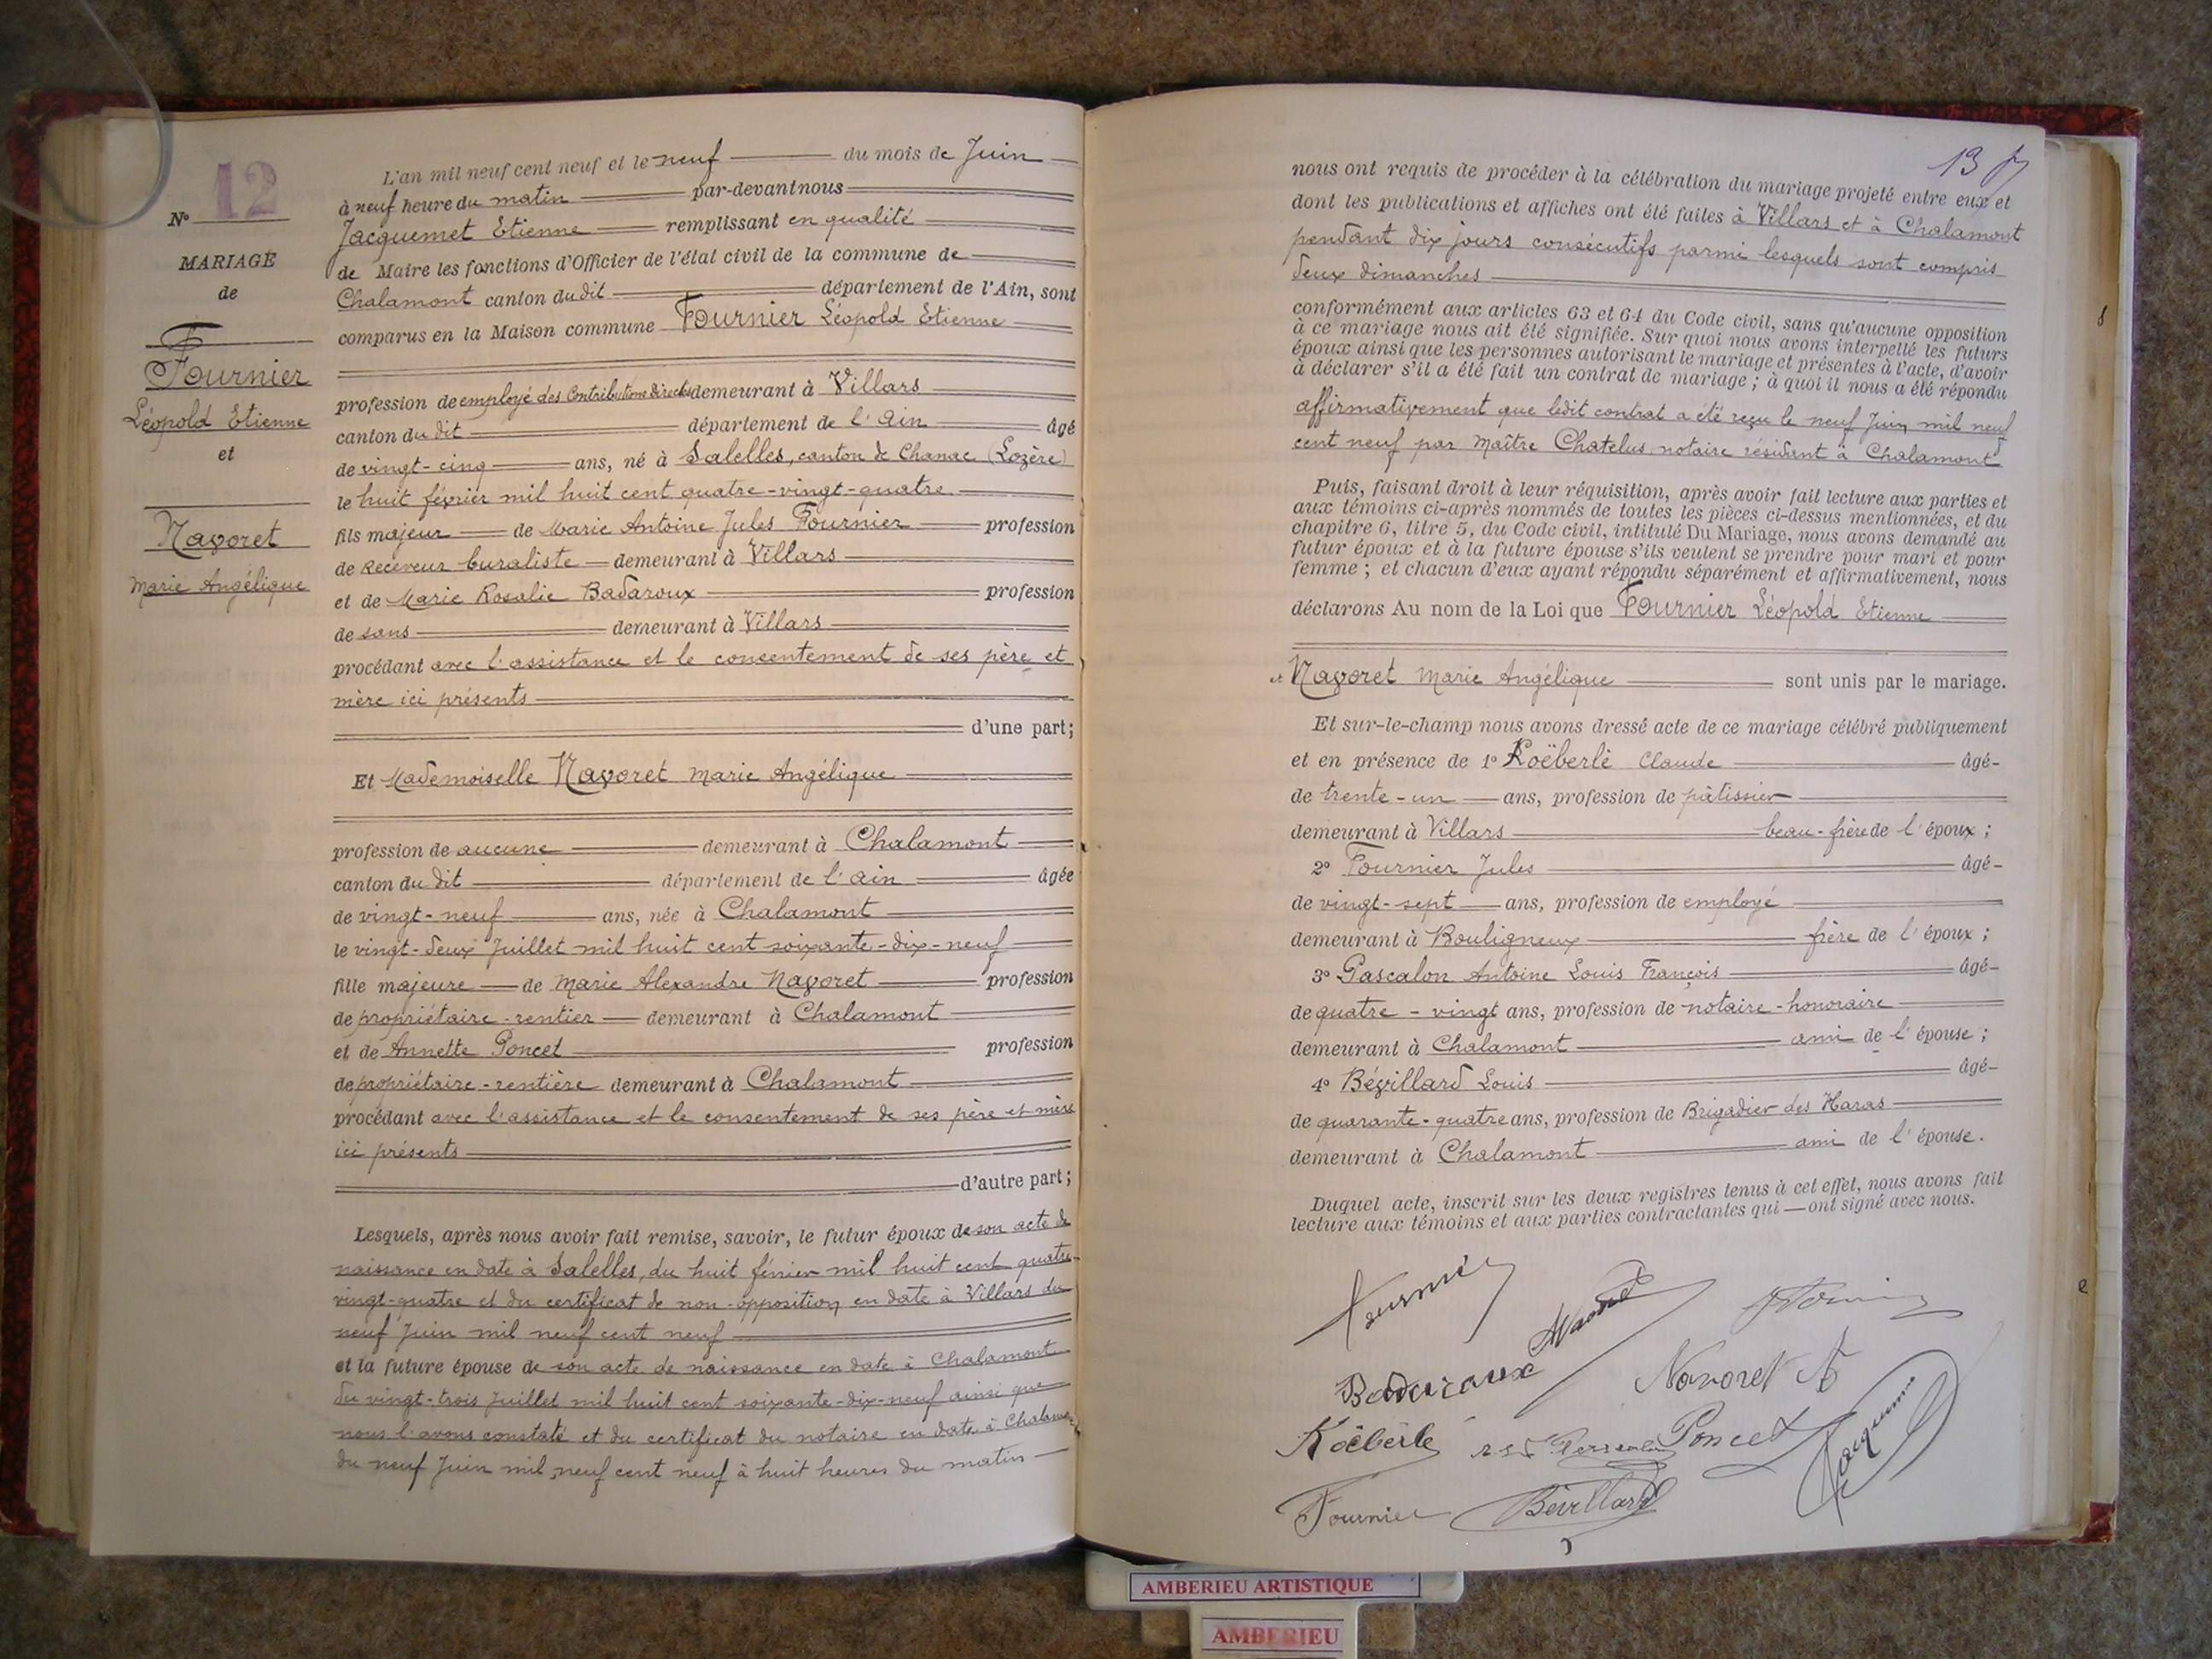 N° 12
MARIAGE
de
Fournier
Léopold Etienne
et
Navoret
Marie Angélique
L'an mil neuf cent neuf et le neuf du mois de Juin
à neuf heure du matin par-devant nous
Jacquemet Etienne remplissant en qualité
de Maire les fonctions d'Officier de l'état civil de la commune de
Chalamont canton du dit département de l'Ain, sont
comparus en la Maison commune Fournier Léopold Etienne
profession de employé des Contributions Directes demeurant à Villars
canton du dit département de l'Ain âgé
de vingt-cinq ans, né à Salelles, canton de Chanac (Lozère)
le huit février mil huit cent quatre-vingt-quatre
fils majeur de Marie Antoine Jules Fournier profession
de Receveur buraliste demeurant à Villars
et de Marie Rosalie Badaroux profession
de sans demeurant à Villars
procédant avec l'assistance et le consentement de ses père et
mère ici présents
d'une part;
Et Mademoiselle Navoret Marie Angélique
profession de aucune demeurant à Chalamont
canton du dit département de l'Ain âgée
de vingt-neuf ans, née à Chalamont
le vingt-deux Juillet mil huit cent soixante-dix-neuf
fille majeure de Marie Alexandre Navoret profession
de propriétaire-rentier demeurant à Chalamont
et de Annette Poncet profession
de propriétaire-rentière demeurant à Chalamont
procédant avec l'assistance et le consentement de ses père et mère
ici présents
d'autre part;
Lesquels, après nous avoir fait remise, savoir, le futur époux de son acte de
naissance en date à Salelles, du huit février mil huit cent quatre-
vingt-quatre et du certificat de non-opposition en date à Villars du
neuf Juin mil neuf cent neuf
et la future épouse de son acte de naissance en date à Chalamont
du vingt-trois Juillet mil huit cent soixante-dix-neuf ainsi que
nous l'avons constaté et du certificat du notaire en date à Chalamont
du neuf Juin mil neuf cent neuf à huit heures du matin
13
nous ont requis de procéder à la célébration du mariage projeté entre eux et
dont les publications et affiches ont été faites à Villars et à Chalamont
pendant dix jours consécutifs parmi lesquels sont compris
deux dimanches
conformément aux articles 63 et 64 du Code civil, sans qu'aucune opposition
à ce mariage nous ait été signifiée. Sur quoi nous avons interpellé les futurs
époux ainsi que les personnes autorisant le mariage et présentes à l'acte, d'avoir
à déclarer s'il a été fait un contrat de mariage; à quoi il nous a été répondu
affirmativement que ledit contrat a été reçu le neuf Juin mil neuf
cent neuf par Maître Chatelus, notaire résidant à Chalamont
Puis, faisant droit à leur réquisition, après avoir fait lecture aux parties et
aux témoins ci-après nommés de toutes les pièces ci-dessus mentionnées, et du
chapitre 6, titre 5, du Code civil, intitulé Du Mariage, nous avons demandé au
futur époux et à la future épouse s'ils veulent se prendre pour mari et pour
femme; et chacun d'eux ayant répondu séparément et affirmativement, nous
déclarons Au nom de la Loi que Fournier Léopold Etienne
et Navoret Marie Angélique sont unis par le mariage.
Et sur-le-champ nous avons dressé acte de ce mariage célébré publiquement
et en présence de 1° Koëberlé Claude âgé-
de trente-un ans, profession de pâtissier
demeurant à Villars beau-frère de l'époux;
2° Fournier Jules âgé-
de vingt-sept ans, profession de employé
demeurant à Bouligneux frère de l'époux;
3° Pascalon Antoine Louis François âgé-
de quatre-vingt ans, profession de notaire-honoraire
demeurant à Chalamont ami de l'épouse;
4° Bévillard Louis âgé-
de quarante-quatre ans, profession de Brigadier des Haras
demeurant à Chalamont ami de l'épouse.
Duquel acte, inscrit sur les deux registres tenus à cet effet, nous avons fait
lecture aux témoins et aux parties contractantes qui — ont signé avec nous.
Fournier
Badaroux
Navoret
Koëberlé
Poncet
Jacquemet
Fournier
Bévillard
AMBERIEU ARTISTIQUE
AMBERIEU